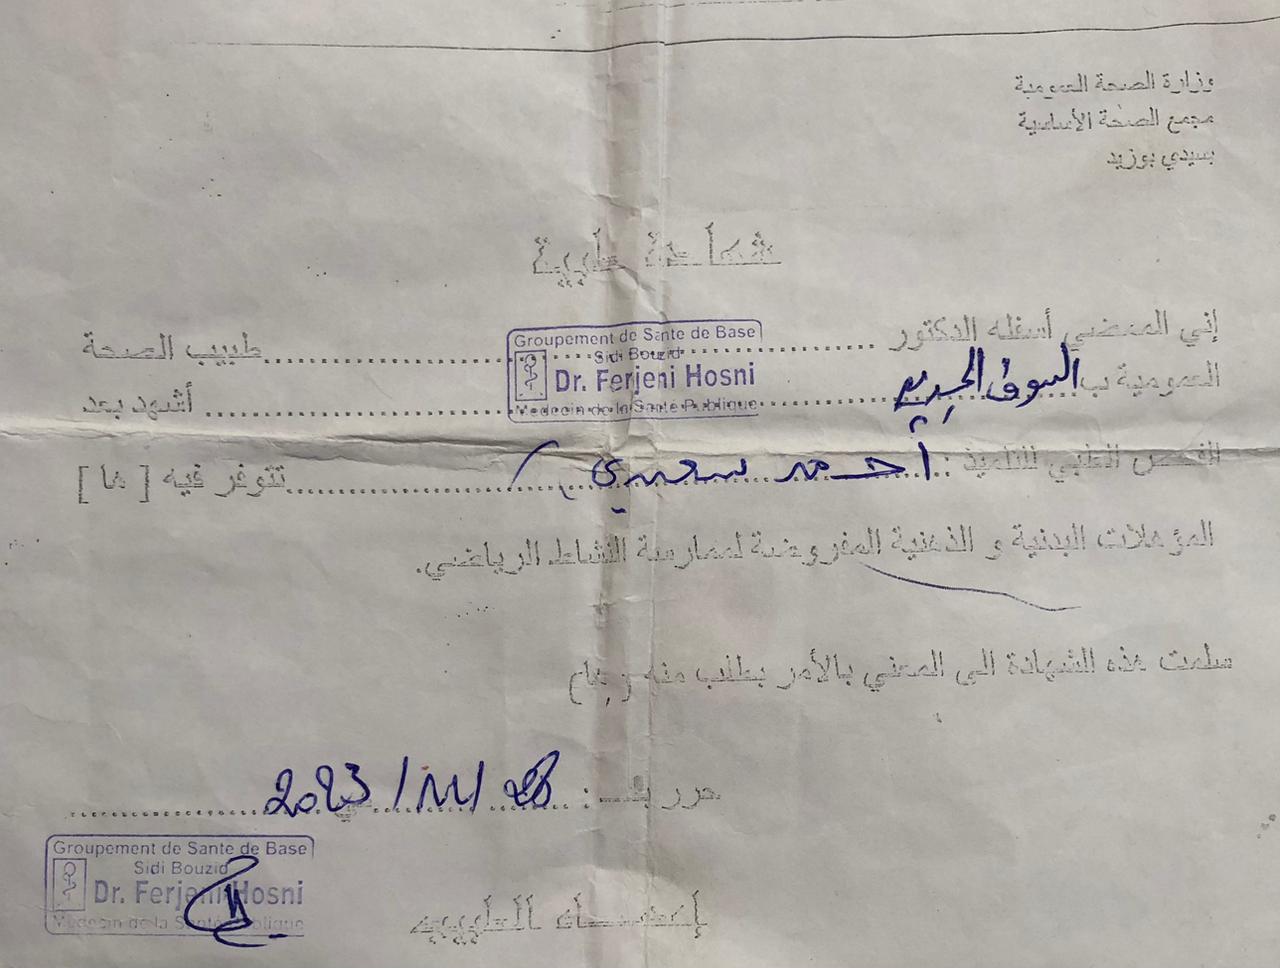 وزارة الصحة العمومية
مجمع الصحة الأساسية
بسيدي بوزيد
شهادة طبية
إني الممضي أسفله الدكتور ........................ طبيب الصحة
Groupement de Sante de Base
Sidi Bouzid
Dr. Ferjeni Hosni
Medecin de la Santé Publique
العمومية ب السوق الجديد ........................ أشهد بعد
الفحص الطبي للتلميذ : أحمد سعيدي ........................ تتوفر فيه [ ها ]
المؤهلات البدنية و الذهنية المفروضة لممارسة النشاط الرياضي.
سلمت هذه الشهادة الى المعني بالأمر بطلب منه ( ها )
حرر ب : في 2023
Groupement de Sante de Base
Sidi Bouzid
Dr. Ferjeni Hosni
Medecin de la Santé Publique
إمضاء الطبيب